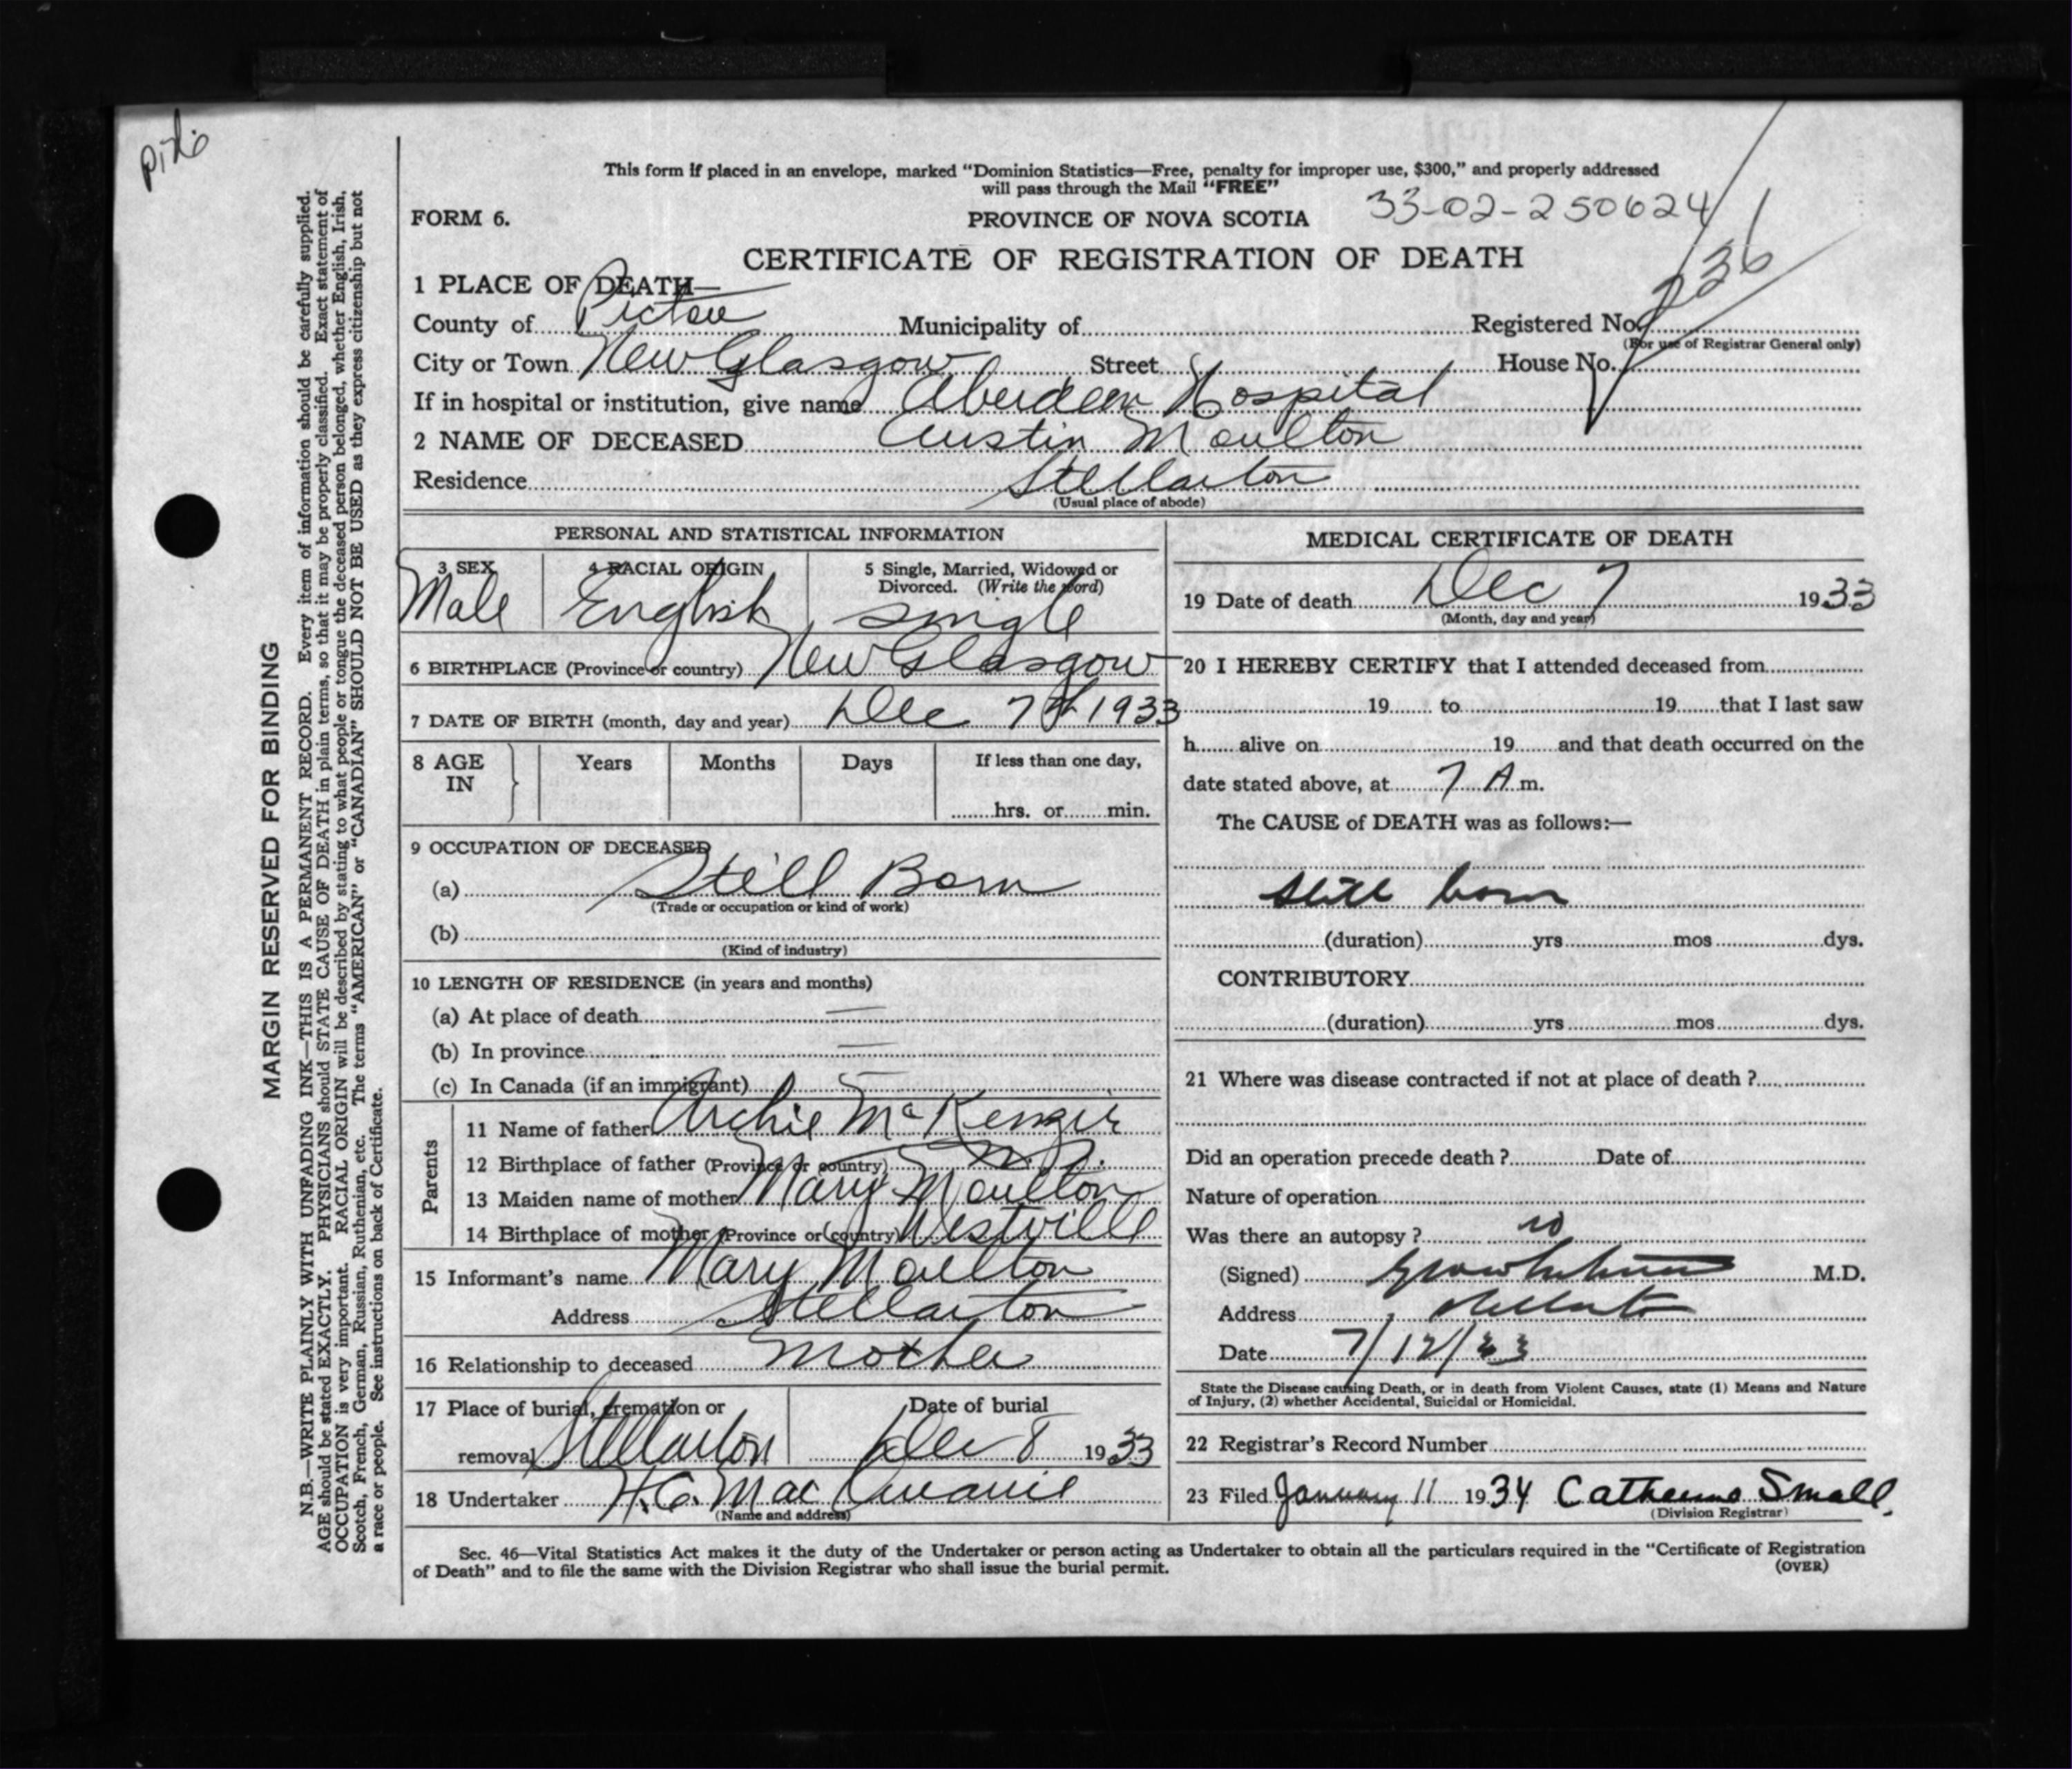 This form if placed in an envelope, marked "Dominion Statistics—Free, penalty for improper use, $300," and properly addressed
will pass through the Mail "FREE"
FORM 6.
PROVINCE OF NOVA SCOTIA
33-02-250624
CERTIFICATE OF REGISTRATION OF DEATH
236
1 PLACE OF DEATH—
County of Pictou Municipality of Registered No.
(For use of Registrar General only)
City or Town New Glasgow Street House No.
If in hospital or institution, give name Aberdeen Hospital
2 NAME OF DECEASED Austin Moulton
Residence Stellarton
(Usual place of abode)
PERSONAL AND STATISTICAL INFORMATION
3 SEX
Male
4 RACIAL ORIGIN
English
5 Single, Married, Widowed or
Divorced. (Write the word)
single
6 BIRTHPLACE (Province or country) New Glasgow
7 DATE OF BIRTH (month, day and year) Dec 7th 1933
8 AGE
IN
Years Months Days If less than one day,
hrs. or min.
9 OCCUPATION OF DECEASED
(a) Still Born
(Trade or occupation or kind of work)
(b)
(Kind of industry)
10 LENGTH OF RESIDENCE (in years and months)
(a) At place of death —
(b) In province —
(c) In Canada (if an immigrant) —
Parents
11 Name of father Archie McKenzie
12 Birthplace of father (Province or country)
13 Maiden name of mother Mary Moulton
14 Birthplace of mother (Province or country) Westville
15 Informant's name Mary Moulton
Address Stellarton
16 Relationship to deceased Mother
17 Place of burial, cremation or
removal Stellarton
Date of burial
Dec 8 1933
18 Undertaker H.C. Mac
(Name and address)
MEDICAL CERTIFICATE OF DEATH
19 Date of death Dec 7 1933
(Month, day and year)
20 I HEREBY CERTIFY that I attended deceased from
19 to 19 that I last saw
h alive on 19 and that death occurred on the
date stated above, at 7 A m.
The CAUSE of DEATH was as follows:—
still born
(duration) yrs mos dys.
CONTRIBUTORY
(duration) yrs mos dys.
21 Where was disease contracted if not at place of death ?
Did an operation precede death ? Date of
Nature of operation
Was there an autopsy ? no
(Signed) M.D.
Address Stellarton
Date 7/12/33
State the Disease causing Death, or in death from Violent Causes, state (1) Means and Nature
of Injury, (2) whether Accidental, Suicidal or Homicidal.
22 Registrar's Record Number
23 Filed January 11 1934 Catherine Small.
(Division Registrar)
Sec. 46—Vital Statistics Act makes it the duty of the Undertaker or person acting as Undertaker to obtain all the particulars required in the "Certificate of Registration
of Death" and to file the same with the Division Registrar who shall issue the burial permit.
(OVER)
MARGIN RESERVED FOR BINDING
N.B.—WRITE PLAINLY WITH UNFADING INK—THIS IS A PERMANENT RECORD. Every item of information should be carefully supplied.
AGE should be stated EXACTLY. PHYSICIANS should STATE CAUSE OF DEATH in plain terms, so that it may be properly classified. Exact statement of
OCCUPATION is very important. RACIAL ORIGIN will be described by stating to what people or tongue the deceased person belonged, whether English, Irish,
Scotch, French, German, Russian, Ruthenian, etc. The terms "AMERICAN" or "CANADIAN" SHOULD NOT BE USED as they express citizenship but not
a race or people. See instructions on back of Certificate.